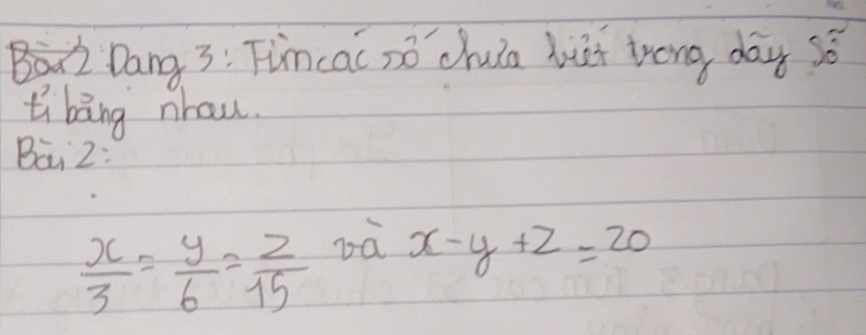 Bài 2 Dạng 3: Tìm các số chưa biết trong dãy số
tỉ bằng nhau.
Bài 2:
x/3 = y/6 = z/15 và x - y + z = 20